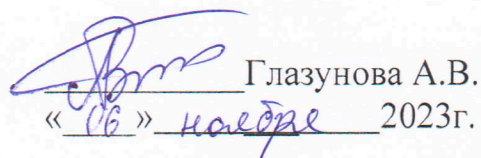 Глазунова А.В.
«06» ноября 2023г.